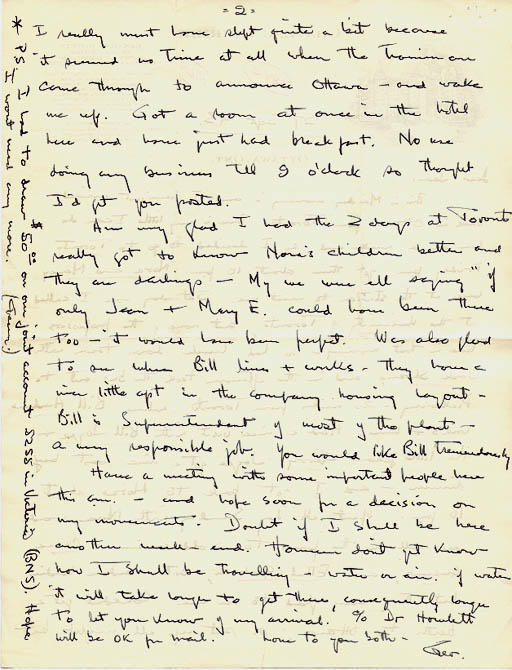 = 2 =
I really must have slept quite a bit because
it seemed no time at all when the trainman
came through to announce Ottawa - and wake
me up. Got a room at once in the hotel
here and have just had breakfast. No use
doing any business till 9 o'clock so thought
I'd get you posted.
Am very glad I had the 2 days at Toronto
really got to know Nora's children better and
they are darlings - My we were all saying "if
only Jean + Mary E. could have been there
too - it would have been perfect. Was also glad
to see where Bill lives + works - they have a
nice little apt in the company housing layout -
Bill is Superintendent of most of the plant -
a very responsible job. You would like Bill tremendously
Have a meeting with some important people here
this am. - and hope soon for a decision on
my movements. Doubt if I shall be here
another week-end. However don't yet know
how I shall be travelling - water or air. if water
it will take longer to get there, consequently longer
to let you know of my arrival. c/o Dr Howlett
will be OK for mail. Love to you both -
Geo.
* PS I had to draw $50.00 on our joint account 5258 in Victoria (BNS). Hope
I wont need any more.